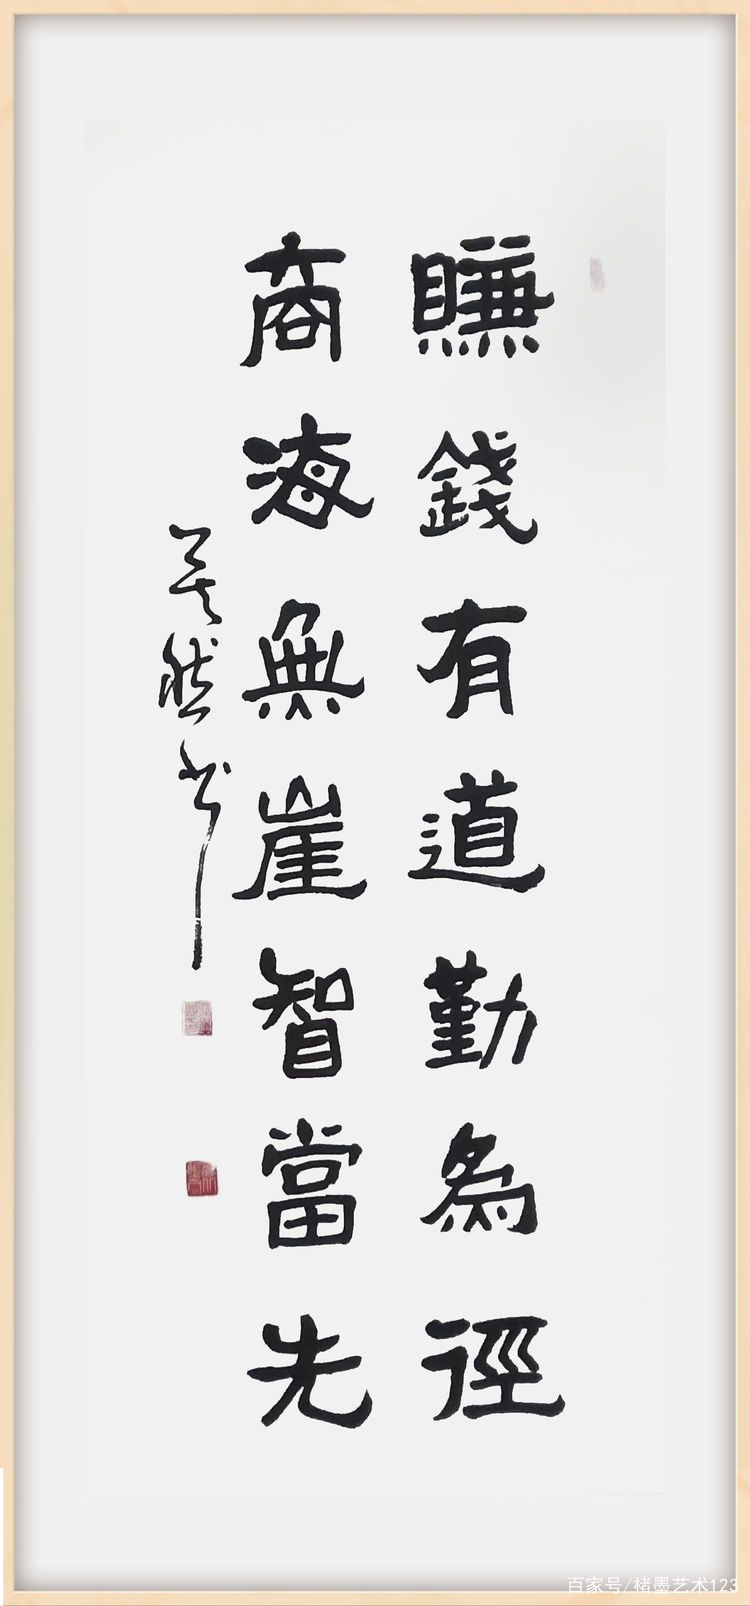 賺錢有道勤為徑
商海無崖智當先
昊然书
百家号/楮墨艺术123